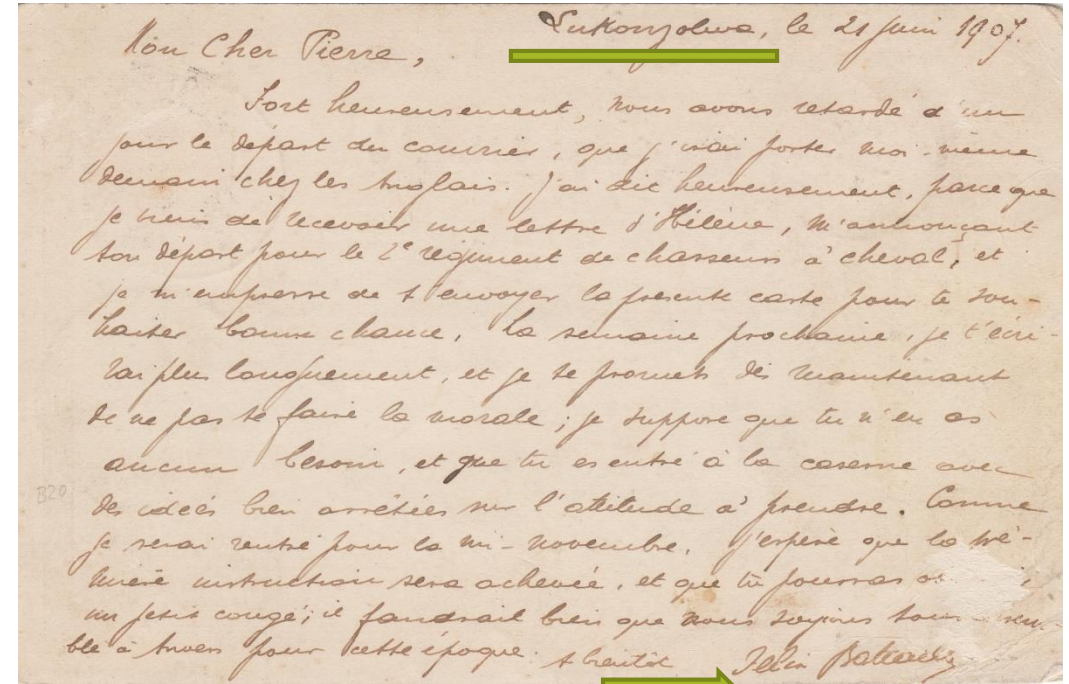 Lukonzolwa, le 21 Juin 1907.
Mon Cher Pierre,
Fort heureusement, nous avons retardé d'un
jour le départ du courrier, que j'irai porter moi-même
demain chez les Anglais. J'ai dit heureusement, parce que
je viens de recevoir une lettre d'Hélène, m'annonçant
ton départ pour le 2e régiment de chasseurs à cheval, et
je m'empresse de t'envoyer la présente carte pour te sou-
haiter bonne chance. La semaine prochaine, je t'écri-
rai plus longuement, et je te promets dès maintenant
de ne pas te faire la morale; je suppose que tu n'en as
aucun besoin, et que tu es entré à la caserne avec
des idées bien arrêtées sur l'attitude à prendre. Comme
je serai rentré pour la mi-novembre, j'espère que la pre-
mière instruction sera achevée, et que tu pourras
un petit congé; il faudrait bien que nous soyons tous
ble à Anvers pour cette époque. A bientôt
B20